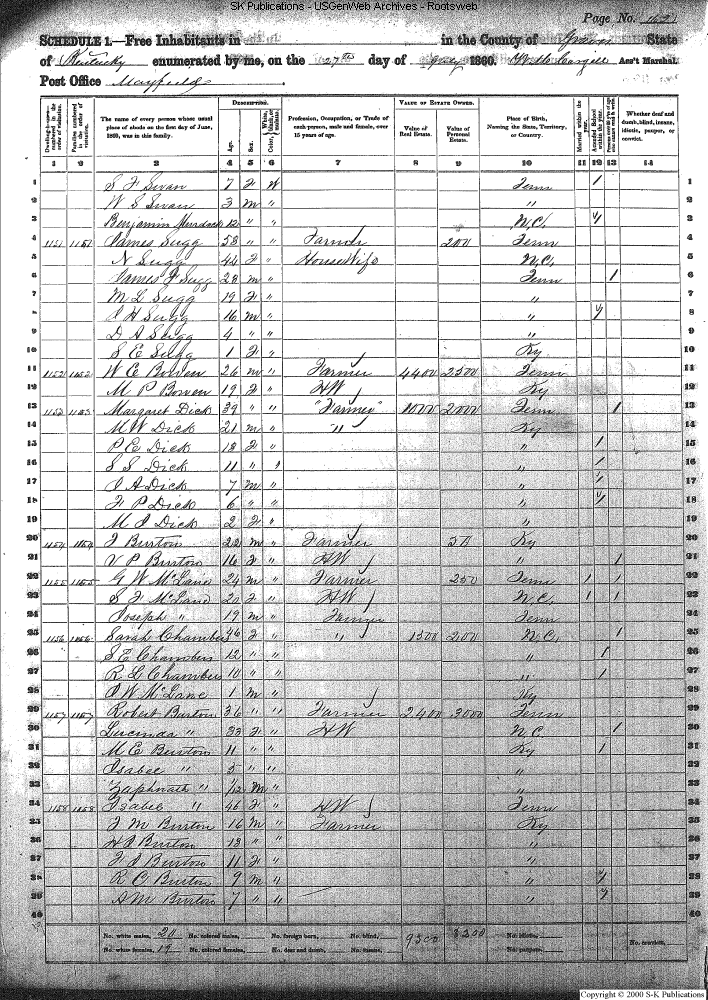 SK Publications - USGenWeb Archives - Rootsweb
Page No. 162
SCHEDULE 1.—Free Inhabitants in in the County of Graves State
of Kentucky enumerated by me, on the 27th day of July 1860. Ass't Marshal.
Post Office Mayfield
DESCRIPTION. VALUE OF ESTATE OWNED.
Dwelling-houses numbered in the order of visitation. Families numbered in the order of visitation. The name of every person whose usual place of abode on the first day of June, 1860, was in this family. Age. Sex. Color, White, black, or mulatto. Profession, Occupation, or Trade of each person, male and female, over 15 years of age. Value of Real Estate. Value of Personal Estate. Place of Birth, Naming the State, Territory, or Country. Married within the year. Attended School within the year. Whether deaf and dumb, blind, insane, idiotic, pauper, or convict.
1 2 3 4 5 6 7 8 9 10 11 12 13 14
1 S F Swan 7 F W Tenn / 1
2 W S Swan 3 m " " 2
3 Benjamin Murdock 12 " " N.C. / 3
4 1151 1151 James Sugg 58 " " Farmer 200 Tenn 4
5 N Sugg 44 F " HouseWife N.C. 5
6 James F Sugg 28 m " Tenn / 6
7 M L Sugg 19 F " " 7
8 J H Sugg 16 m " " / 8
9 D A Sugg 4 " " " 9
10 S E Sugg 1 F " Ky 10
11 1152 1152 W E Bowen 26 m " Farmer 4400 2500 Tenn 11
12 M P Bowen 19 F " HW Ky 12
13 1153 1153 Margaret Dick 39 " " "Farmer" 1000 2000 Tenn / 13
14 M W Dick 21 m " " Ky 14
15 P E Dick 13 F " " / 15
16 S S Dick 11 " " " / 16
17 J A Dick 7 m " " / 17
18 F P Dick 6 " " " / 18
19 M J Dick 2 F " " 19
20 1154 1154 J Burton 22 m " Farmer 50 Ky 20
21 V P Burton 16 F " HW " / 21
22 1155 1155 G W McLane 24 m " Farmer 250 Tenn / / 22
23 S F McLane 20 F " HW N.C. / / 23
24 Joseph " 19 m " Farmer Tenn 24
25 1156 1156 Sarah Chambers 46 F " " 1500 200 N.C. / 25
26 S E Chambers 12 " " " / 26
27 R L Chambers 10 " " " / 27
28 J W McLane 1 m " Ky 28
29 1157 1157 Robert Burton 36 " " Farmer 2400 3000 Tenn 29
30 Lucinda " 33 F " HW N.C. / 30
31 M E Burton 11 " " Ky / 31
32 Isabel " 5 " " " 32
33 Zaphnath " 1/12 M " " 33
34 1158 1158 Isabel " 46 F " HW Tenn 34
35 J M Burton 16 m " Farmer Ky 35
36 H J Burton 13 " " " 36
37 F J Burton 11 F " " 37
38 R C Burton 9 m " " / 38
39 A M Burton 7 " " " / 39
40 40
No. white males, 20 No. colored males, No. foreign born, No. blind, 9300 8200 No. idiotic,
No. white females, 19 No. colored females, No. deaf and dumb, No. insane, No. paupers, No. convicts,
Copyright © 2000 S-K Publications